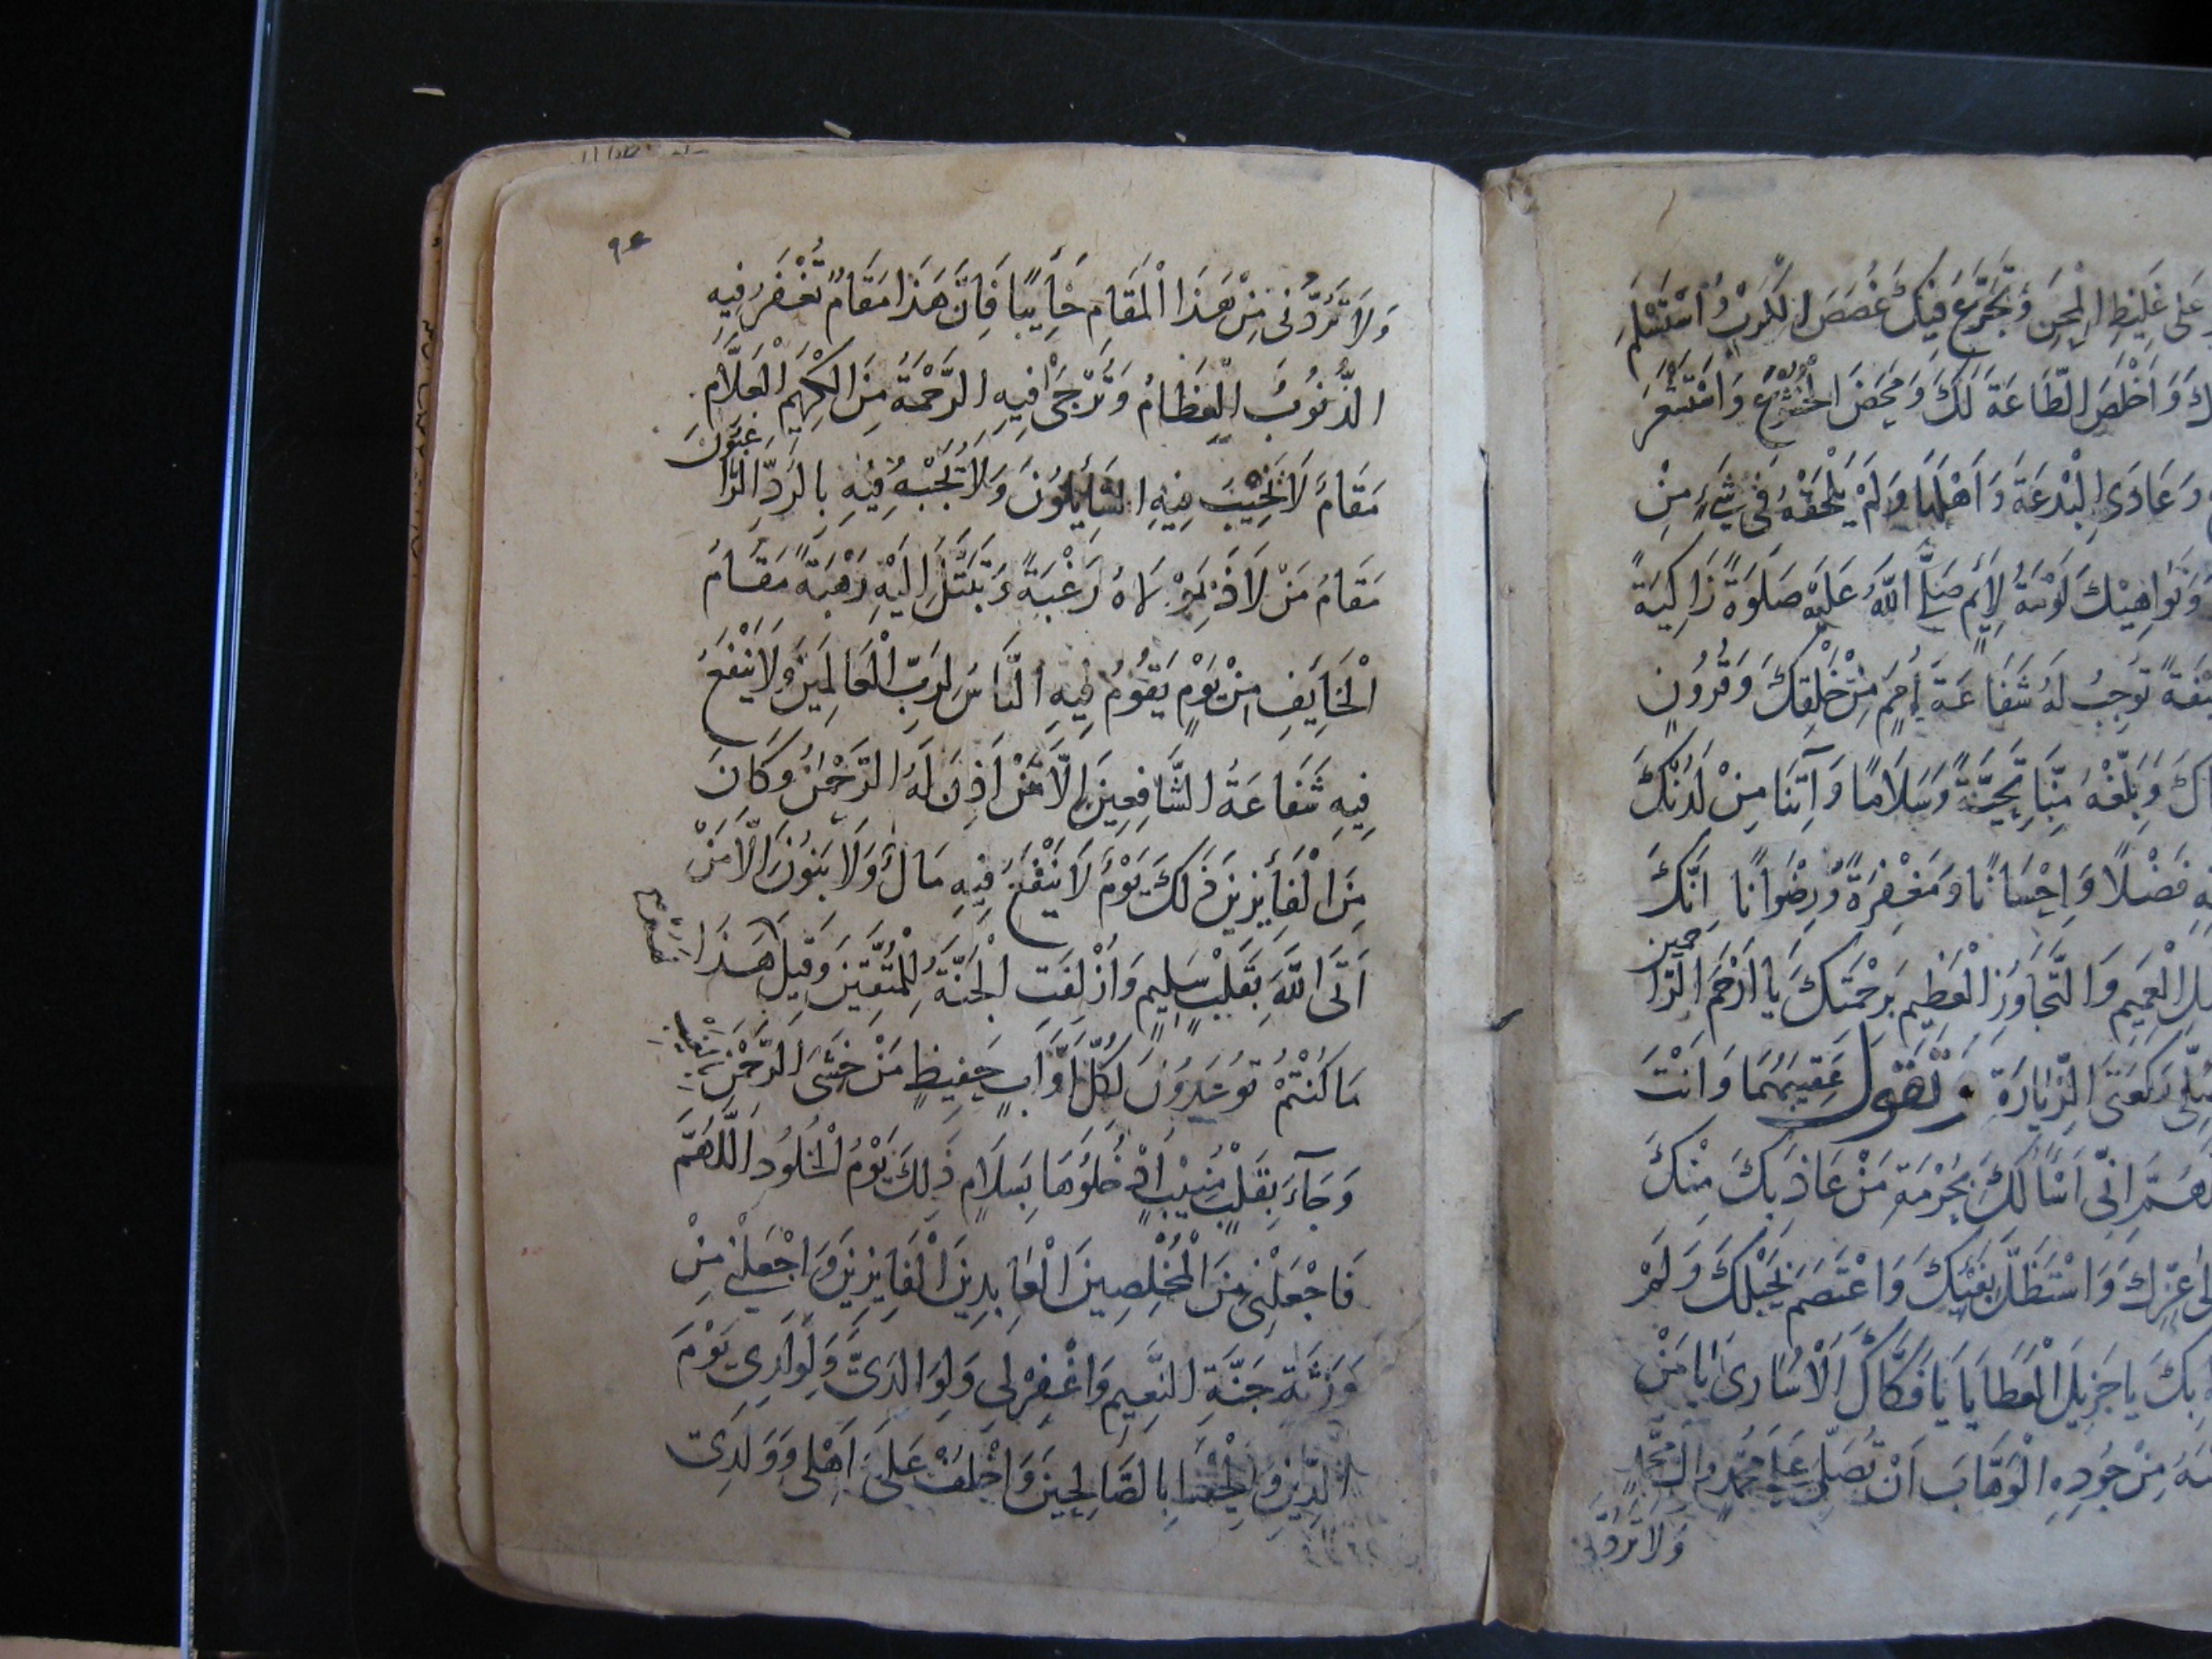 عَلى غَلِيظِ الْمِحَنِ وَتَجَرَّعَ فِيكَ غُصَصَ الْكُرَبِ وَاسْتَسْلَمَ
وَاَخْلَصَ الطَّاعَةَ لَكَ وَمَحَضَ الْخُشُوعَ وَاسْتَشْعَرَ
وَعَادَى الْبِدْعَةَ وَاَهْلَهَا وَلَمْ يَلْحَقْهُ فى شَىْءٍ مِنْ
وَنَوَاهِيكَ لَوْمَةُ لَائِمٍ صَلَّى اللّٰهُ عَلَيْهِ صَلَوةً زَاكِيَةً
تُوجِبُ لَهُ شَفَاعَةَ اُمَمٍ مِنْ خَلْقِكَ وَقُرُونٍ
وَبَلِّغْهُ مِنَّا تَحِيَّةً وَسَلَامًا وَآتِنَا مِنْ لَدُنْكَ
فَضْلًا وَاِحْسَانًا وَمَغْفِرَةً وَرِضْوَانًا اِنَّكَ
الْعَمِيمِ وَالتَّجَاوُزِ الْعَظِيمِ بِرَحْمَتِكَ يَا اَرْحَمَ الرَّا حمين
رَكْعَتَىِ الزِّيَارَةِ وَتَقُولُ عَقِيبَهُمَا وَاَنْتَ
اِنّى اَسْاَلُكَ بِحُرْمَةِ مَنْ عَاذَ بِكَ مِنْكَ
عِزِّكَ وَاسْتَظَلَّ بِفَيْئِكَ وَاعْتَصَمَ بِحَبْلِكَ وَلَمْ
بِكَ يَا جَزِيلَ الْعَطَايَا يَا فَكَّاكَ الْاُسَارى يَا مَنْ
مِنْ جُودِهِ الْوَهَّابَ اَنْ تُصَلِّىَ عَلى مُحَمَّدٍ وَآلِ مُحَمَّدٍ
وَلَا تَرُدَّنى
وَلَا تَرُدَّنى مِنْ هَذَا الْمَقَامِ خَائِبًا فَاِنَّ هَذَا مَقَامٌ تُغْفَرُ فِيهِ
الذُّنُوبُ الْعِظَامُ وَتُرْجَى فِيهِ الرَّحْمَةُ مِنَ الْكَرِيمِ الْعَلَّامِ
مَقَامٌ لَا يَخِيبُ فِيهِ السَّائِلُونَ وَلَا يُجْبَهُ فِيهِ بِالرَّدِّ الرَّا غِبُونَ
مَقَامُ مَنْ لَاذَ بِمَوْلَاهُ رَغْبَةً وَتَبَتَّلَ اِلَيْهِ رَهْبَةً مَقَامُ
الْخَائِفِ مِنْ يَوْمٍ يَقُومُ فِيهِ النَّاسُ لِرَبِّ الْعَالَمِينَ وَلَا يَنْفَعُ
فِيهِ شَفَاعَةُ الشَّافِعِينَ اِلَّا مَنْ اَذِنَ لَهُ الرَّحْمٰنُ وَكَانَ
مِنَ الْفَائِزِينَ ذَلِكَ يَوْمٌ لَا يَنْفَعُ فِيهِ مَالٌ وَلَا بَنُونَ اِلَّا مَنْ
اَتَى اللّٰهَ بِقَلْبٍ سَلِيمٍ وَاُزْلِفَتِ الْجَنَّةُ لِلْمُتَّقِينَ وَقِيلَ هَذَا
مَا كُنْتُمْ تُوعَدُونَ لِكُلِّ اَوَّابٍ حَفِيظٍ مَنْ خَشِىَ الرَّحْمٰنَ بِالْغَيْبِ
وَجَآءَ بِقَلْبٍ مُنِيبٍ ادْخُلُوهَا بِسَلَامٍ ذَلِكَ يَوْمُ الْخُلُودِ اَللّٰهُمَّ
فَاجْعَلْنى مِنَ الْمُخْلِصِينَ الْعَابِدِينَ الْفَايِزِينَ وَاجْعَلْنى مِنْ
وَرَثَةِ جَنَّةِ النَّعِيمِ وَاغْفِرْ لى وَلِوَالِدَىَّ وَلِوُلْدِى يَوْمَ
الدِّينِ وَاَلْحِقْنَا بِالصَّالِحِينَ وَاخْلُفْ عَلَى اَهْلى وَوَلَدِى